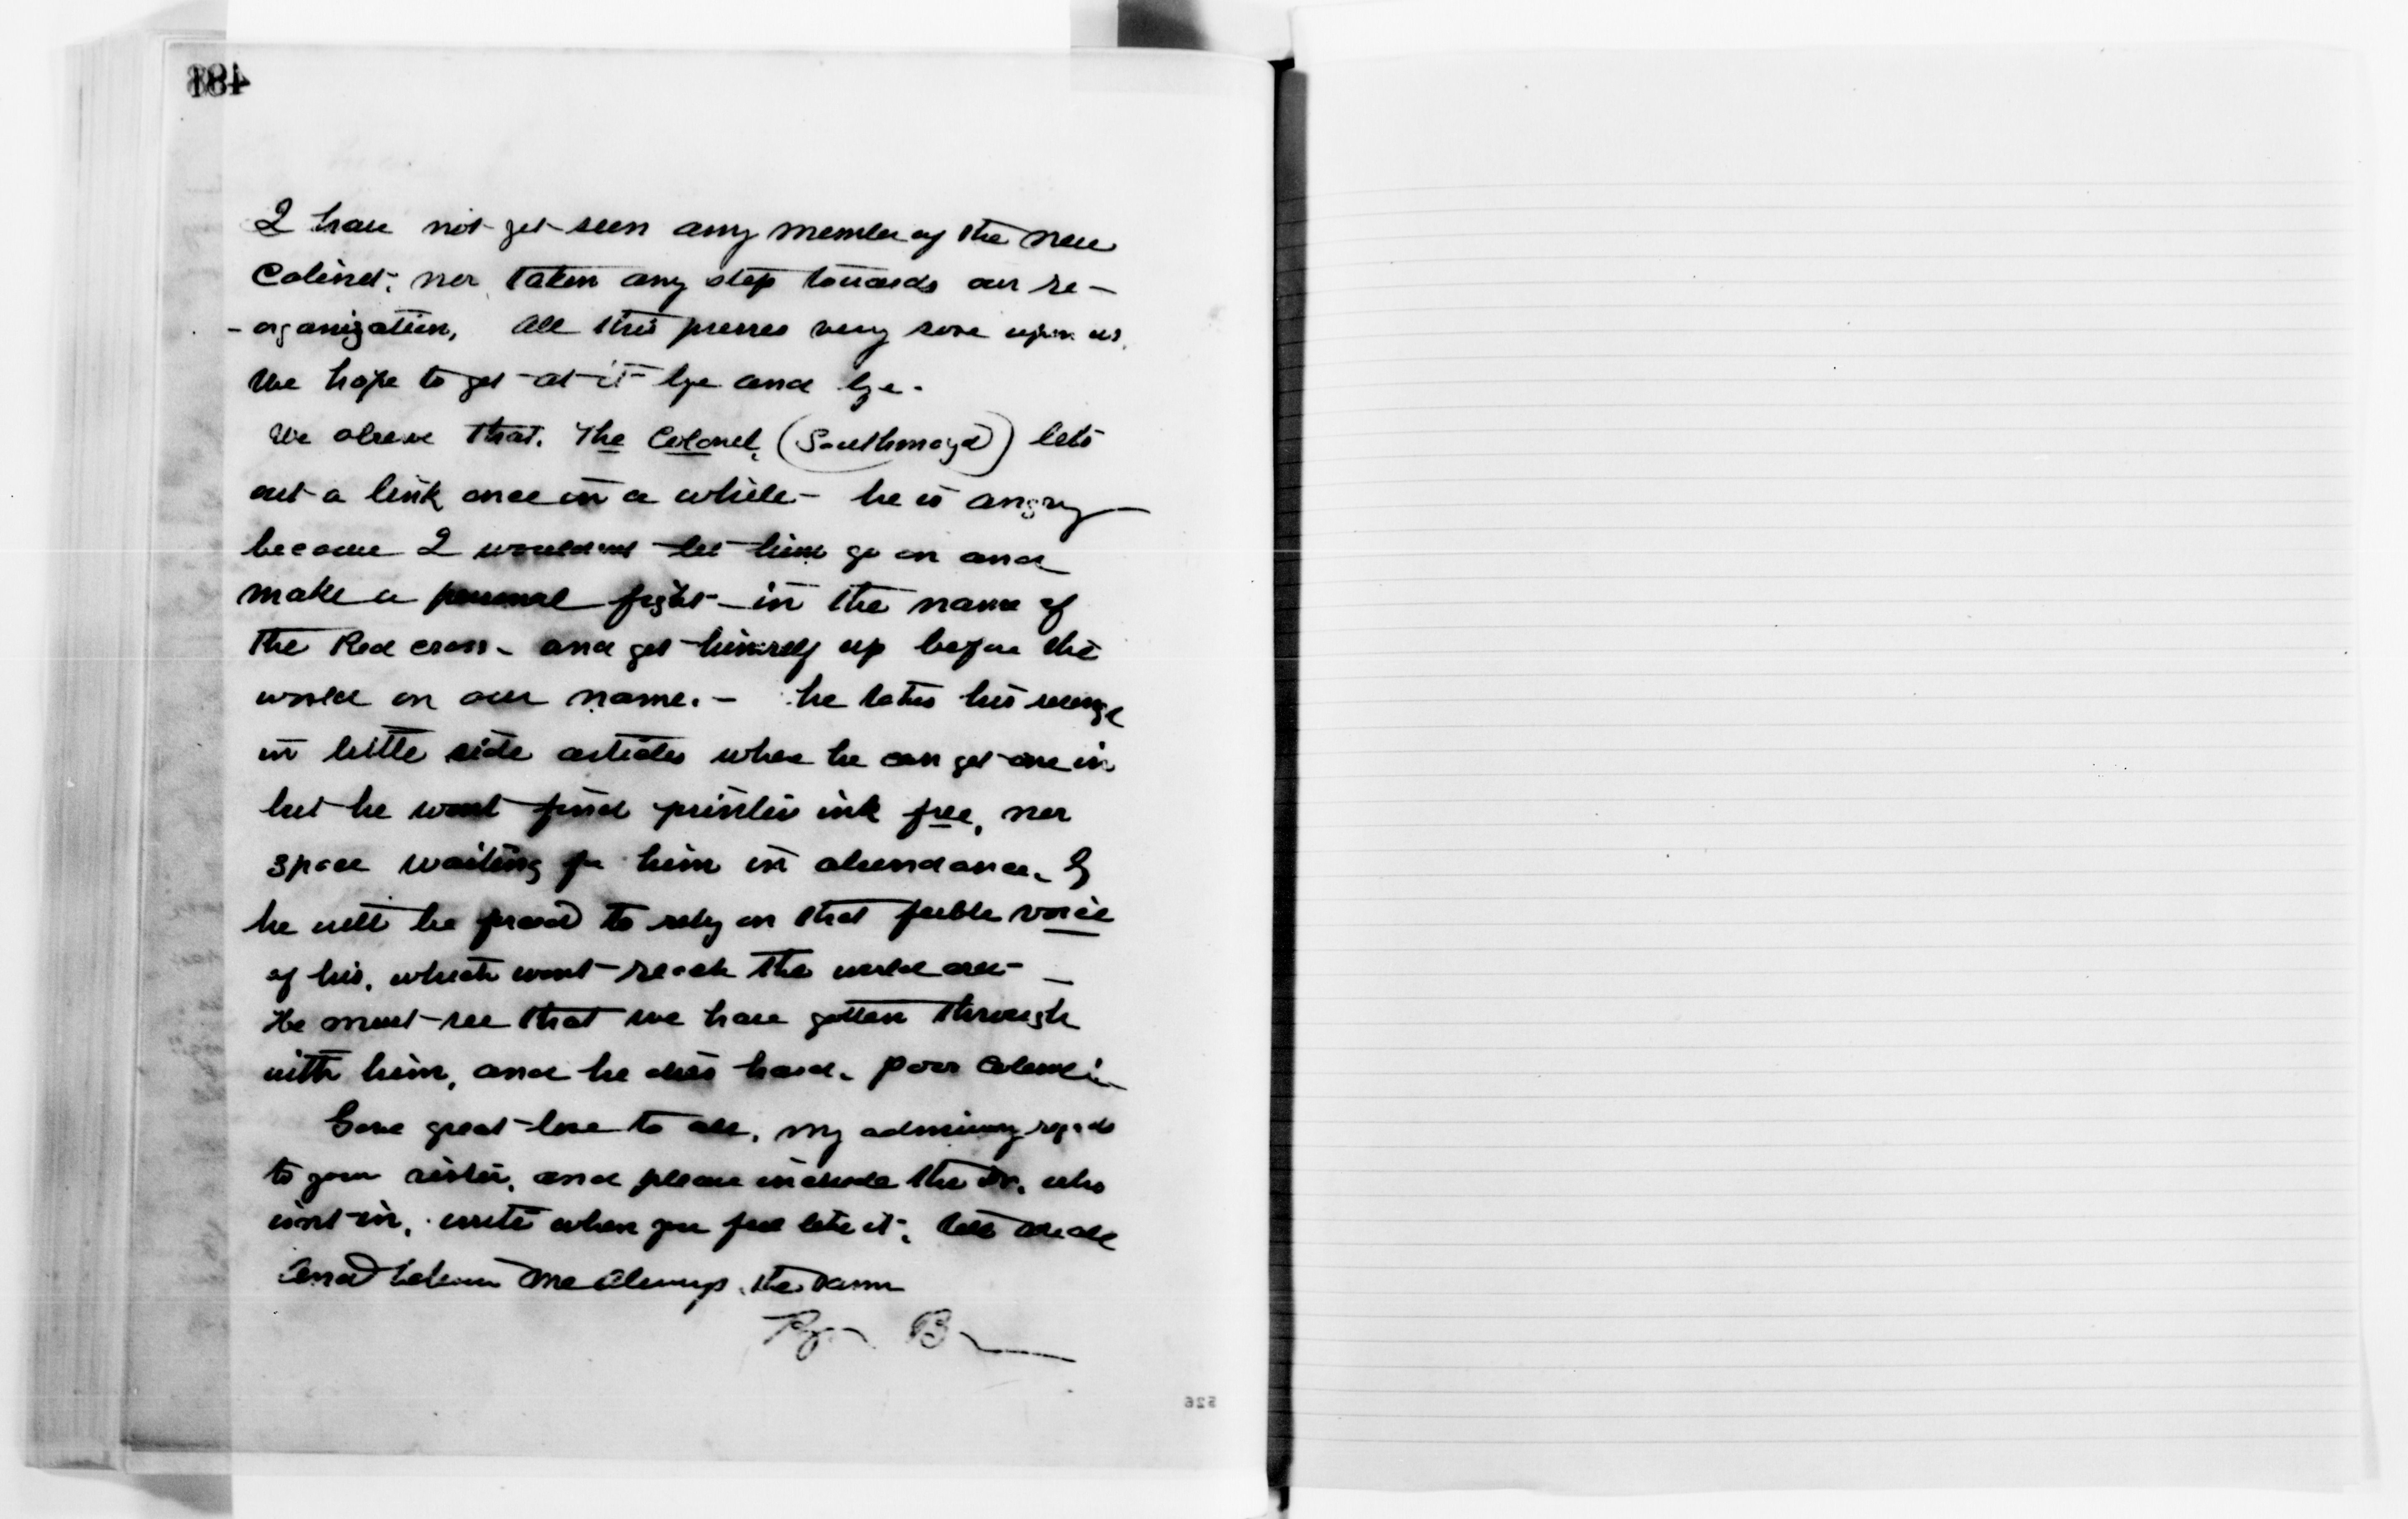 I have not yet seen any member of the new
Cabinet; nor taken any step towards our re-
-organization, All this presses very sore upon us.
We hope to get at it bye and bye.
We observe that, The Colonel, (Southmayd) lets
out a link once in a while - he is angry
because I would not let him go on and
make a personal fight in the name of
the Red cross - and get himself up before the
world on our name. - he takes his revenge
in little side articles when he can get one in
but he wont find printers ink free, nor
space waiting for him in abundance. &
he will be forced to rely on that feeble voice
of his, which wont reach the world over -
He must see that we have gotten through
with him, and he dies hard. Poor Colonel!
Give great love to all, my admiring regards
to your sister, and please include the Dr. who
isnt in, write when you feel like it,
and believe me always the same
B
526